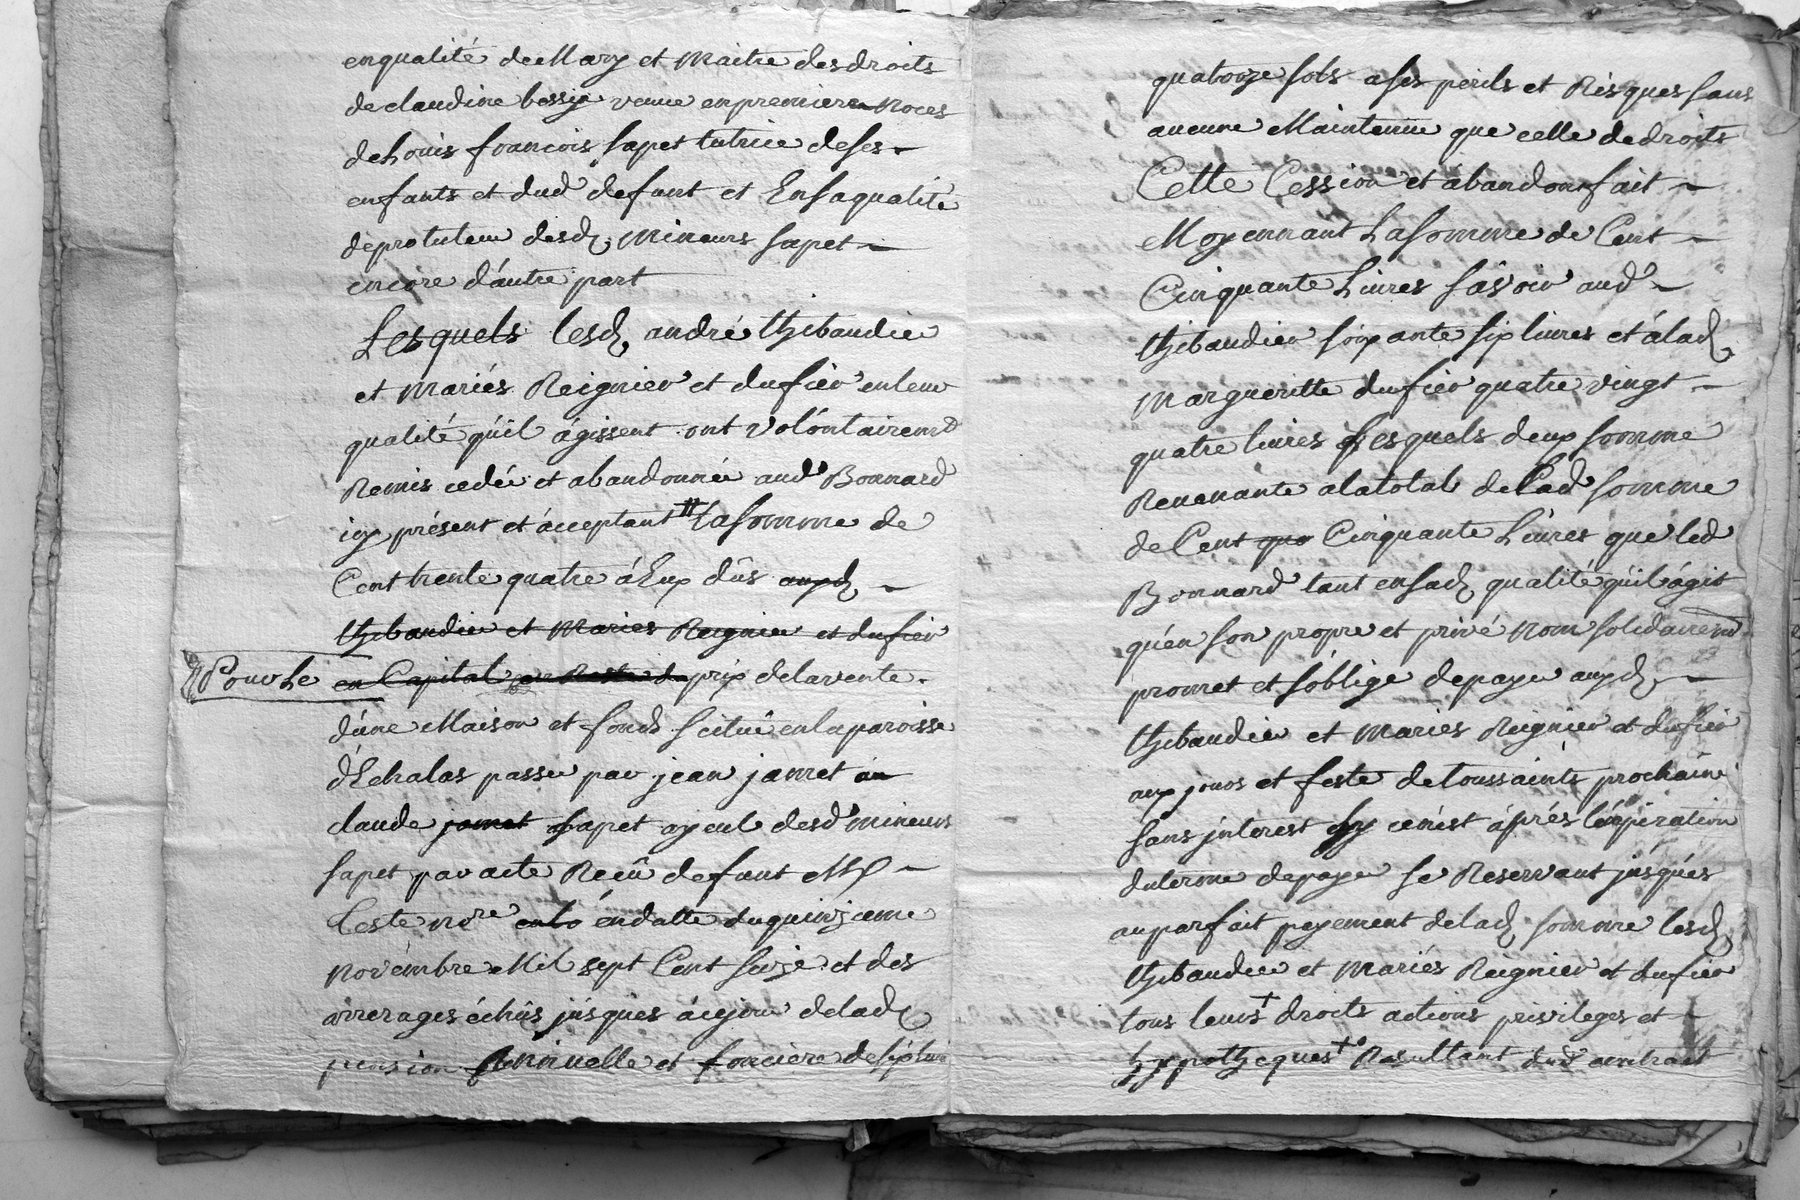 en qualité de Mary et maitre des droits
de claudine bessy veuve en premieres noces
de Louis francois sapet tutrice de ses
enfants et dud defunt et En sa qualité
de protuteur desd. mineurs sapet
encore d'autre part
Lesquels lesd. andré thibaudier
et mariés Reignier et dufier en leur
qualité qu'il agissent ont volontairemt
Remis cedée et abandonnée aud Bonnard
icy présent et acceptant # la somme de
Cent trente quatre à Eux dûs auxd
thibaudier et Mariés Reignier et dufier
Pour le en Capital prix de la vente
d'une Maison et fonds scitué en la paroisse
d'Echalas passée par jean jamet au
claude jamet sapet ayeul desd mineurs
sapet par acte Reçû defunt Me
Teste nore en datte du quinzieme
novembre Mil sept Cent seize et des
arrerages échûs jusques à ce jour de lad
pension Annuelle et fonciere de six livres
quatorze sols a ses perils et Risques sans
aucune Maintenue que celle de droits
Cette Cession et abandon fait
Moyennant La somme de Cent
Cinquante Livres sâvoir aud
thibaudier soixante six livres et à lad.
margueritte dufier quatre vingt
quatre livres Lesquels deux somme
Revenante a la total de Lad somme
de Cent que Cinquante Livres que led
Bonnard tant en sad. qualité qu'il agit
qu'en son propre et privé nom solidairemt
promet et s'oblige de payer auxd.
thibaudier et mariés Reignier et dufier
aux jours et feste de toussaints prochain
sans interest sy ce n'est après l'expiration
du terme de payer se Reservant jusques
au parfait payement de lad. somme lesd.
thibaudier et mariés Reignier et dufier
tous leurs + droits actions privileges et
hypotheques + Resultant dud contract